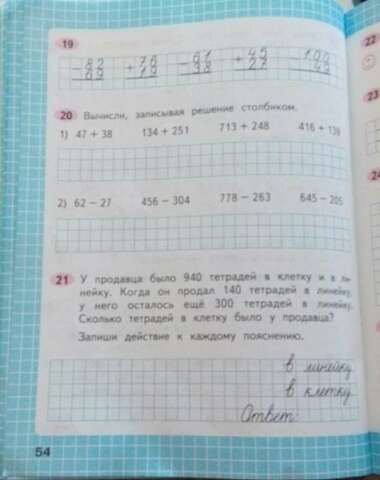 19
− 82 + 76 − 61 + 45 − 100
69 19 38 27 49
20 Вычисли, записывая решение столбиком.
1) 47 + 38 134 + 251 713 + 248 416 + 139
2) 62 − 27 456 − 304 778 − 263 645 − 205
21 У продавца было 940 тетрадей в клетку и в ли-
нейку. Когда он продал 140 тетрадей в линейку,
у него осталось ещё 300 тетрадей в линейку.
Сколько тетрадей в клетку было у продавца?
Запиши действие к каждому пояснению.
в линейку
в клетку
Ответ:
54
22
23